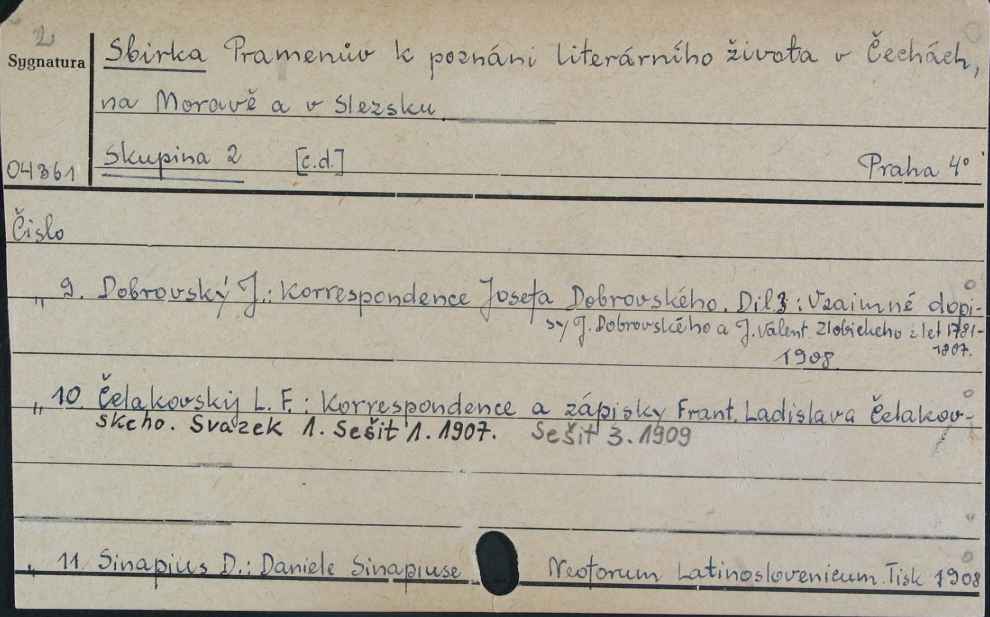 2
Sygnatura
Sbirka Pramenův k poznáni literárního života v Čechách,
na Moravě a v Slezsku
04861 Skupina 2 [c.d.] Praha 4°
Čislo
„ 9. Dobrovský J.: Korrespondence Josefa Dobrovského. Dil 3: Vzaimné dopi-
sy J. Dobrovského a J. Valent. Zlobického z let 1781-
1807.
1908
„ 10. Čelakovský L. F.: Korrespondence a zápisky Frant. Ladislava Čelakov-
skeho. Svazek 1. Sešit 1. 1907. Sešit 3. 1909
„ 11. Sinapius D.: Daniele Sinapiuse Neoforum Latinoslovenicum. Tisk 1908